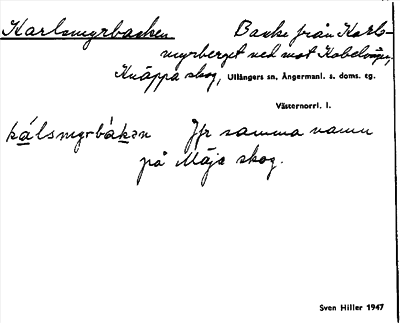 Karlsmyrbacken Backe från Karls-
myrberget ned mot Kobelvägen,
Knäppa skog, Ullångers sn, Ångermanl. s. doms. tg.
Västernorrl. l.
kálsmyrbàkən Jfr samma namn
på Mäja skog.
Sven Hiller 1947